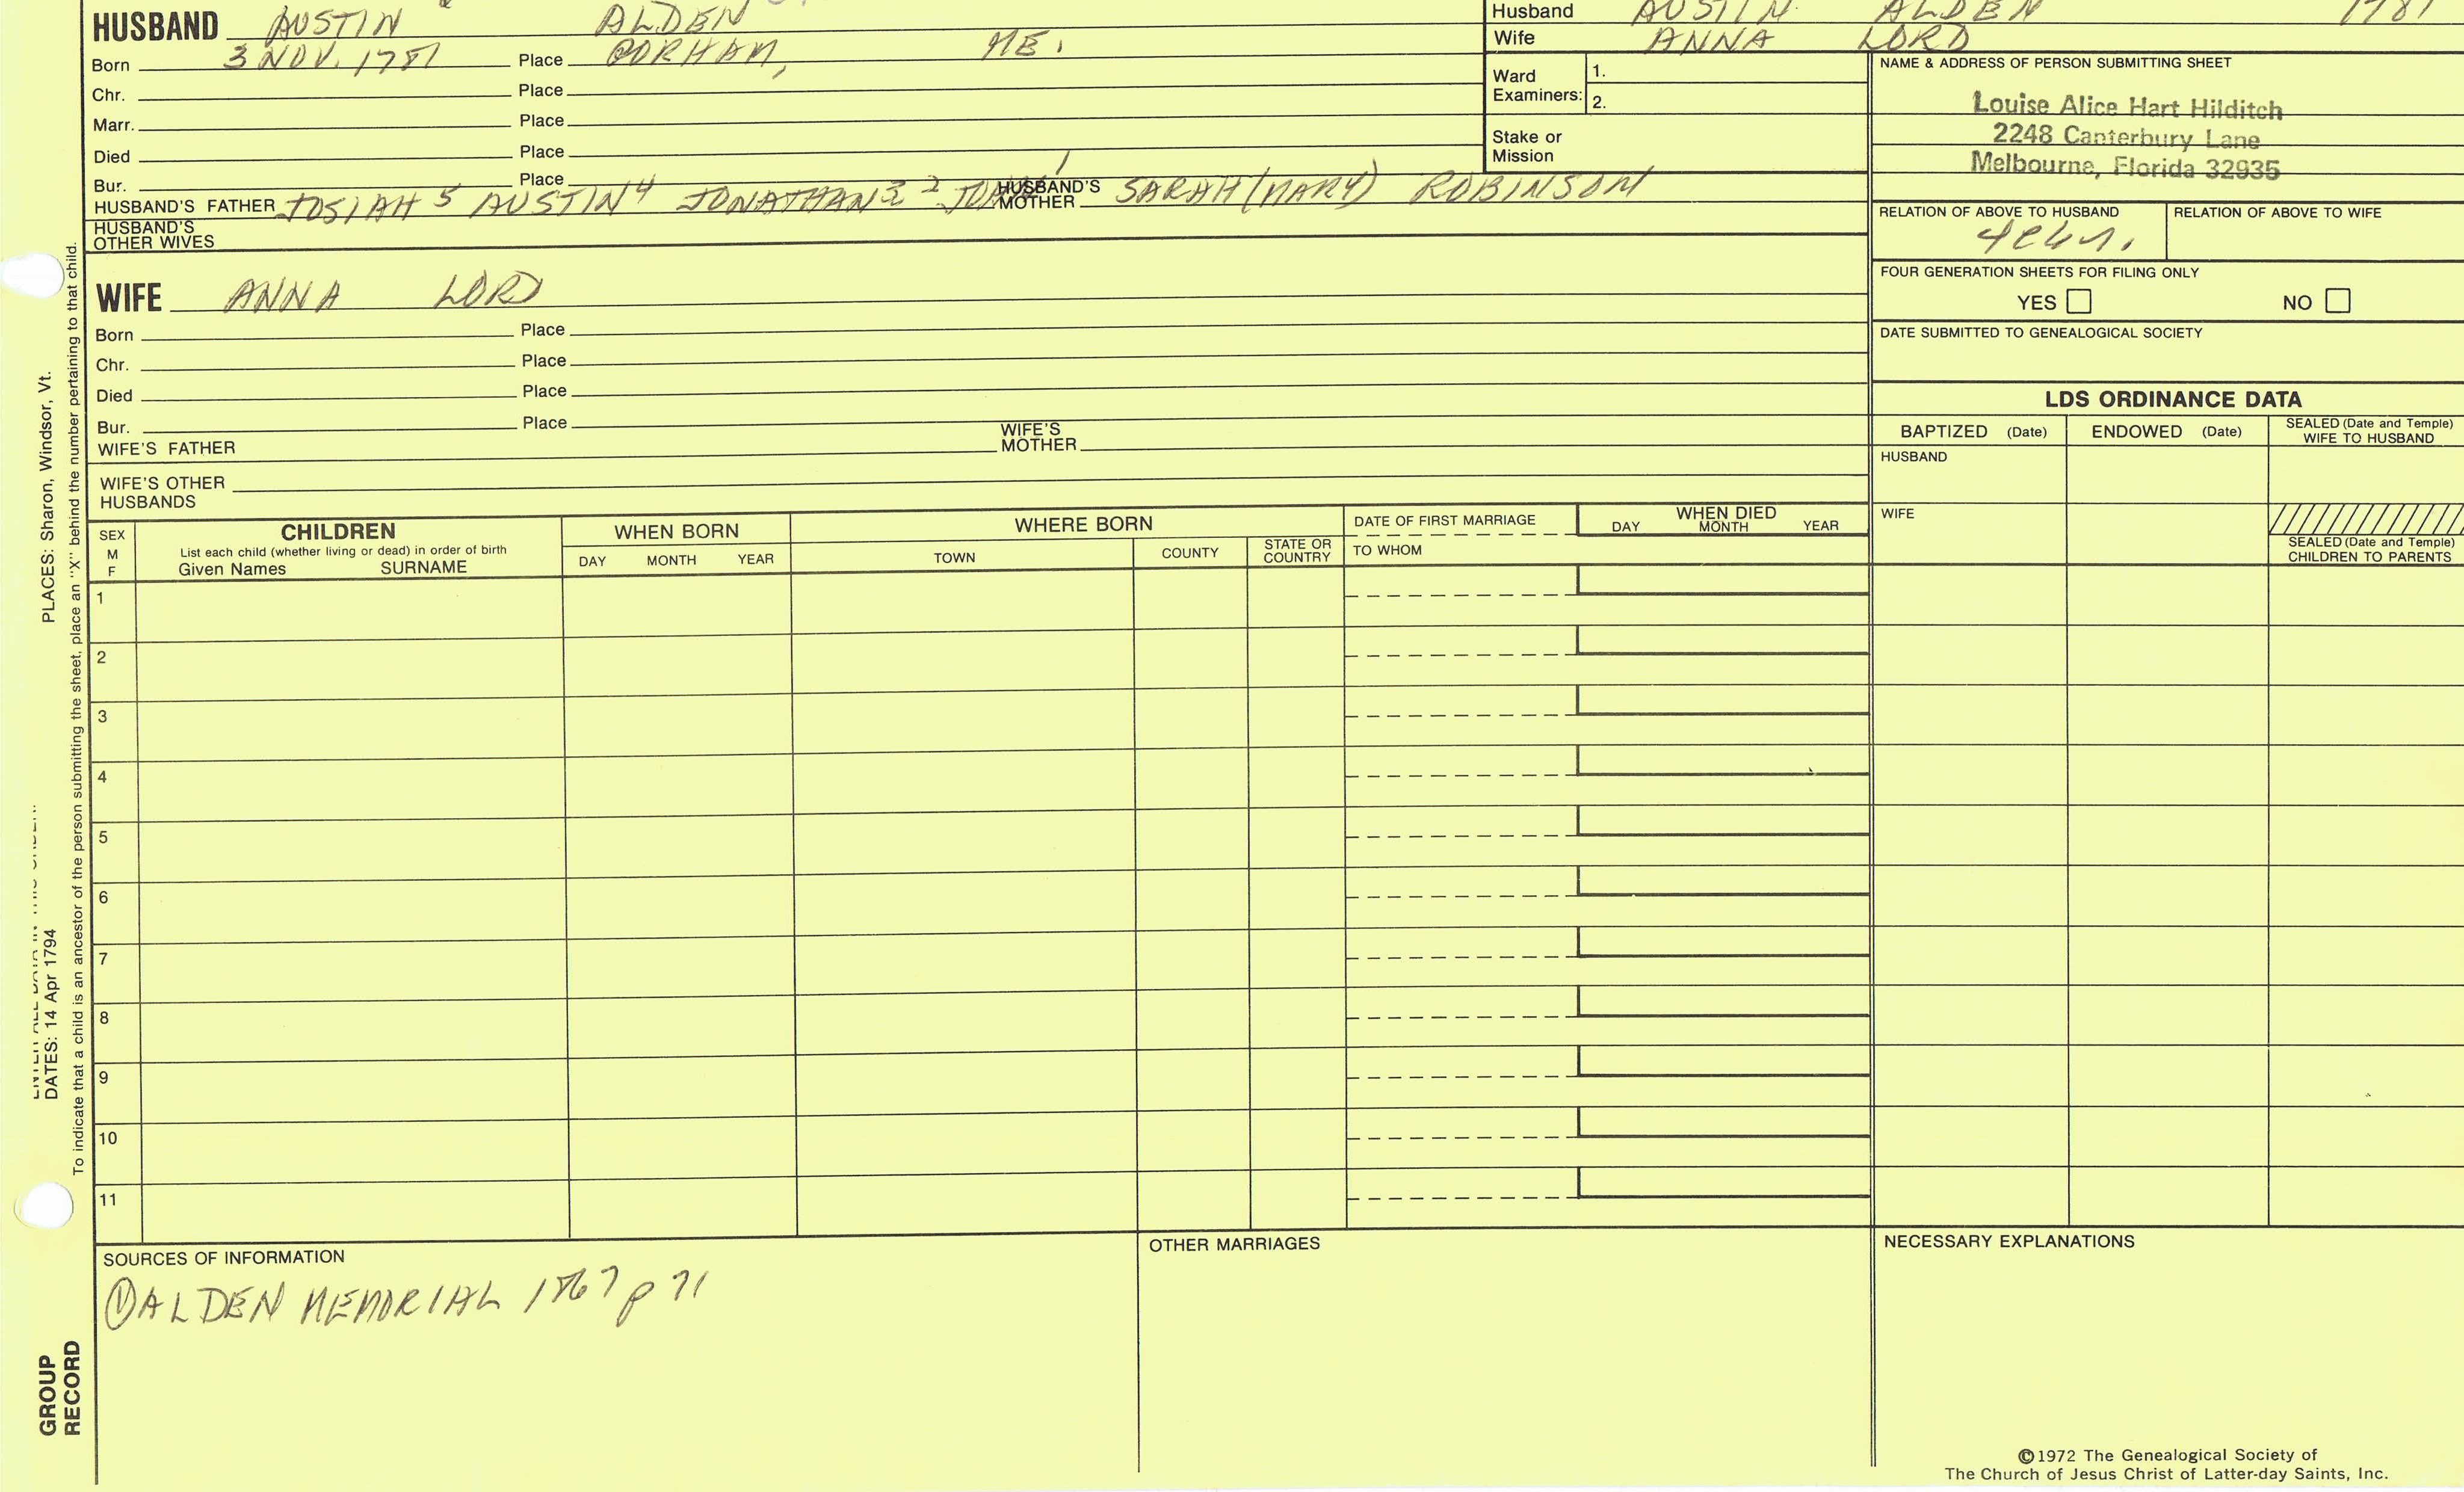 HUSBAND AUSTIN ALDEN
Born 3 NOV. 1781 Place GORHAM, ME.
Chr. Place
Marr. Place
Died Place
Bur. Place
HUSBAND'S FATHER JOSIAH 5 AUSTIN 4 JONATHAN 3 2 HUSBAND'S MOTHER SARAH (MARY) ROBINSON
HUSBAND'S OTHER WIVES
WIFE ANNA LORD
Born Place
Chr. Place
Died Place
Bur. Place
WIFE'S FATHER WIFE'S MOTHER
WIFE'S OTHER HUSBANDS
Husband AUSTIN ALDEN 1781
Wife ANNA LORD
Ward Examiners: 1.
2.
Stake or Mission
NAME & ADDRESS OF PERSON SUBMITTING SHEET
Louise Alice Hart Hilditch
2248 Canterbury Lane
Melbourne, Florida 32935
RELATION OF ABOVE TO HUSBAND RELATION OF ABOVE TO WIFE
FOUR GENERATION SHEETS FOR FILING ONLY
YES NO
DATE SUBMITTED TO GENEALOGICAL SOCIETY
LDS ORDINANCE DATA
BAPTIZED (Date) ENDOWED (Date) SEALED (Date and Temple) WIFE TO HUSBAND
HUSBAND
WIFE
SEALED (Date and Temple) CHILDREN TO PARENTS
SEX M F
CHILDREN
List each child (whether living or dead) in order of birth
Given Names SURNAME
WHEN BORN
DAY MONTH YEAR
WHERE BORN
TOWN COUNTY STATE OR COUNTRY
DATE OF FIRST MARRIAGE
TO WHOM
WHEN DIED
DAY MONTH YEAR
1
2
3
4
5
6
7
8
9
10
11
SOURCES OF INFORMATION
① ALDEN MEMORIAL 1867 p 71
OTHER MARRIAGES
NECESSARY EXPLANATIONS
©1972 The Genealogical Society of
The Church of Jesus Christ of Latter-day Saints, Inc.
PLACES: Sharon, Windsor, Vt.
DATES: 14 Apr 1794
To indicate that a child is an ancestor of the person submitting the sheet, place an "X" behind the number pertaining to that child.
GROUP
RECORD